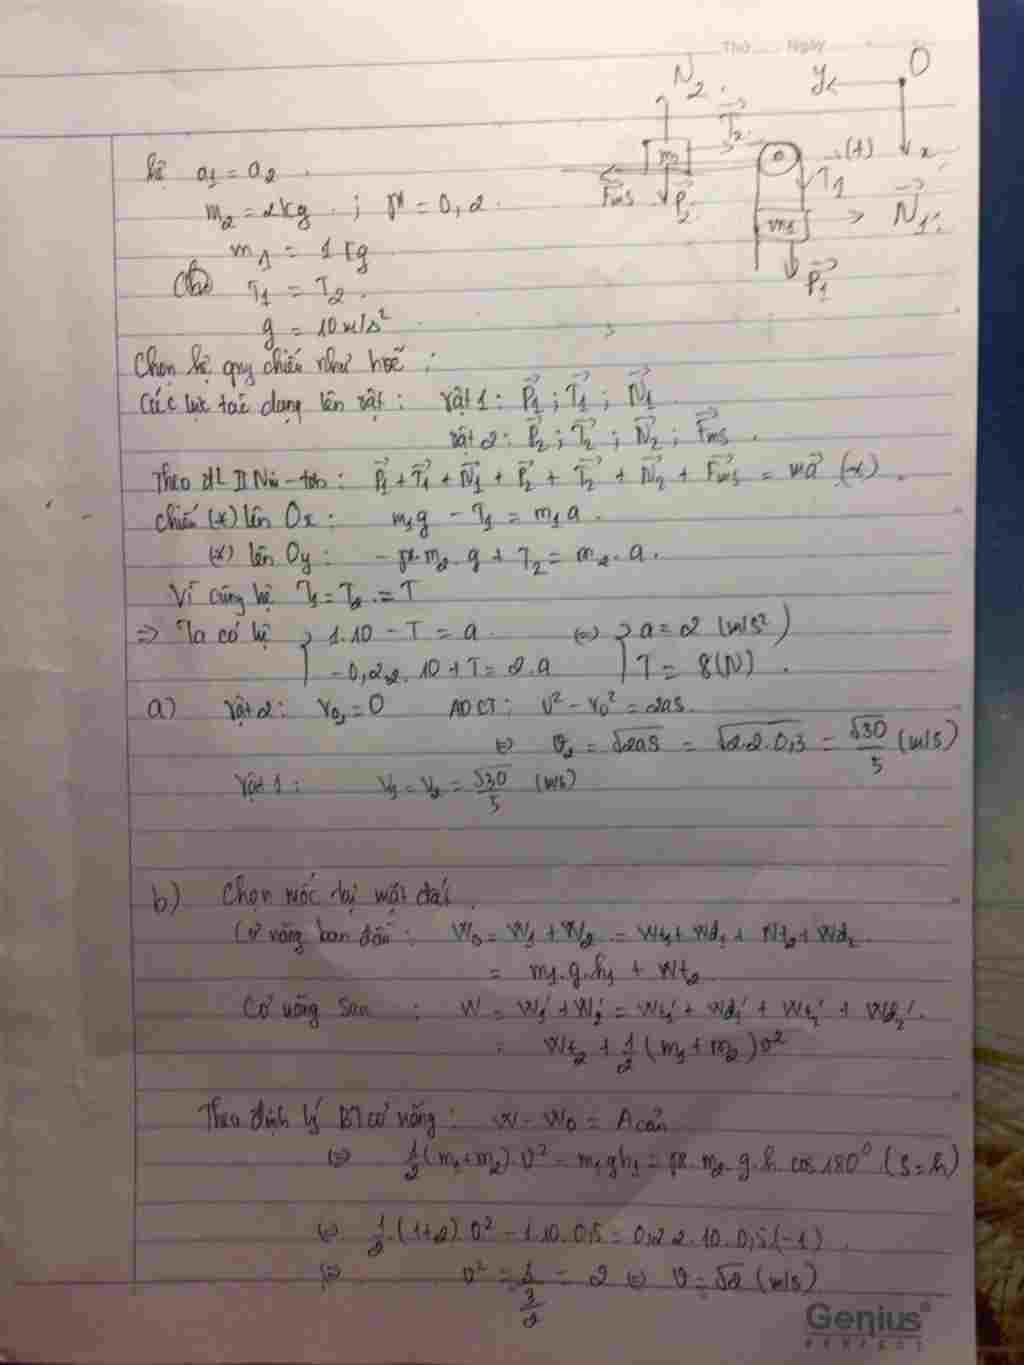 Thứ Ngày
N₂ T₂ y O
m₂ (+) x
Fms P₂ T₁
m₁ N₁
P₁
hệ a₁ = a₂
m₂ = 2kg ; μ = 0,2
m₁ = 1kg
T₁ = T₂
g = 10m/s²
Chọn hệ quy chiếu như hvẽ :
Các lực tác dụng lên vật : vật 1 : P₁ ; T₁ ; N₁
vật 2 : P₂ ; T₂ ; N₂ ; Fms .
Theo đl II Niu-tơn : P₁ + T₁ + N₁ + P₂ + T₂ + N₂ + Fms = ma (*) .
Chiếu (*) lên Ox : m₁g - T₁ = m₁a .
(*) lên Oy : - μ.m₂.g + T₂ = m₂.a .
Vì cùng hệ T₁ = T₂ = T
=> Ta có hệ { 1.10 - T = a <=> { a = 2 (m/s²)
-0,2.2.10 + T = 2.a T = 8 (N) .
a) vật 2 : v₀₂ = 0 ADCT : v² - v₀² = 2as.
<=> v₂ = √2as = √2.2.0,3 = √30/5 (m/s)
vật 1 : v₁ = v₂ = √30/5 (m/s)
b) Chọn mốc tại mặt đất .
Cơ năng ban đầu : W₀ = W₁ + W₂ = Wt₁ + Wđ₁ + Wt₂ + Wđ₂
= m₁.g.h₁ + Wt₂
Cơ năng sau : W = W₁' + W₂' = Wt₁' + Wđ₁' + Wt₂' + Wđ₂' .
Wt₂ + 1/2 (m₁ + m₂) v²
Theo định lý BT cơ năng : W - W₀ = A cản
<=> 1/2 (m₁+m₂).v² - m₁gh₁ = μ.m₂.g.h.cos180° (s=h)
<=> 1/2.(1+2).v² - 1.10.0,5 = 0,2.2.10.0,5.(-1) .
<=> v² = 3/(3/2) = 2 <=> v = √2 (m/s)
Genius
PERFECT